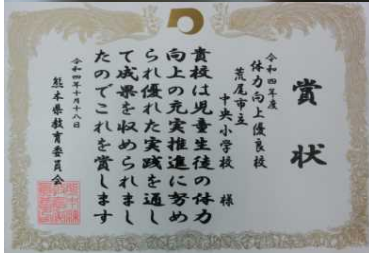 賞状
令和四年度
体力向上優良校
荒尾市立
中央小学校 様
貴校は児童生徒の体力
向上の充実推進に努め
られ優れた実践を通し
て成果を収められまし
たのでこれを賞します
令和四年十月十八日
熊本県教育委員会